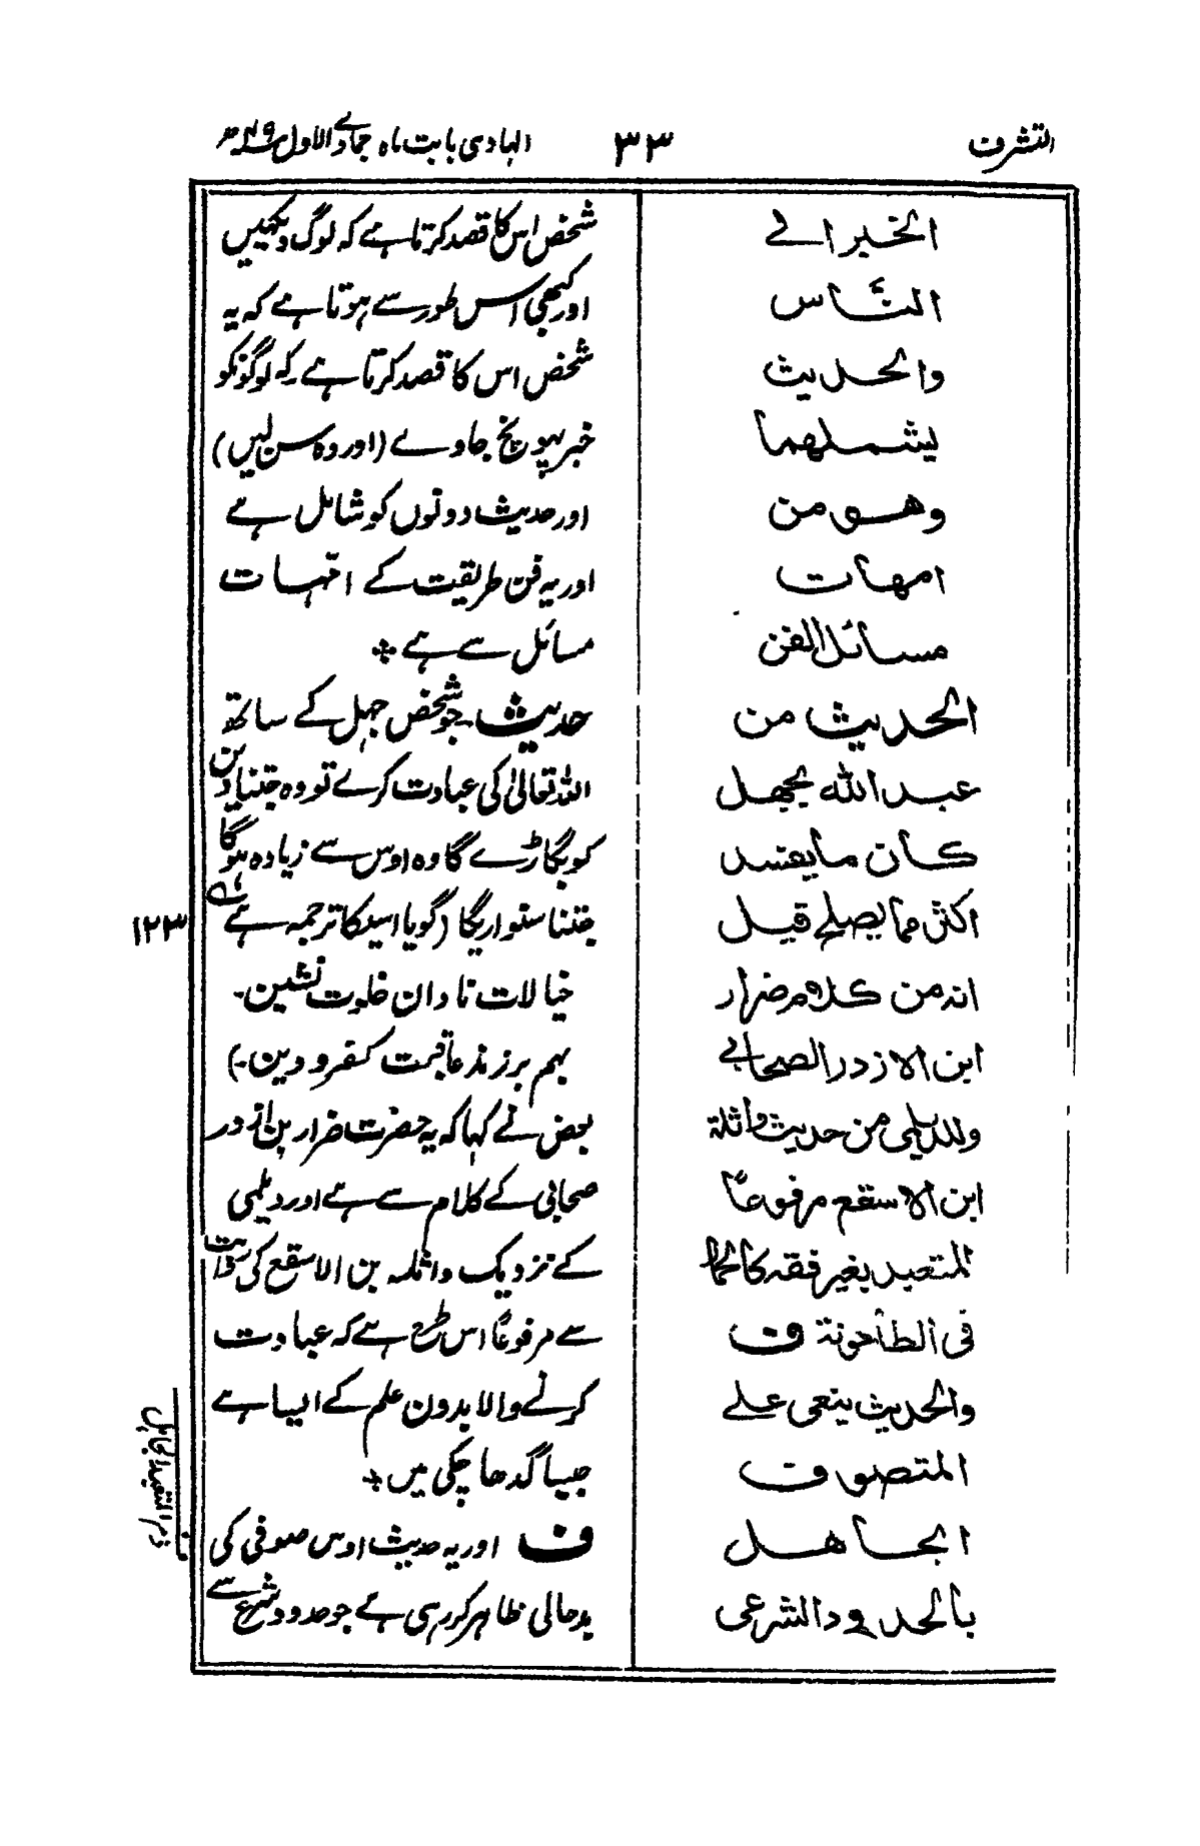 التشرف
۳۳
الہادی بابت ماہ جمادی الاول ۴۹ھ
الخبر الی
النّاس
والحدیث
یشملهما
وهو من
امهات
مسائل الفن
الحدیث من
عبد الله بجهل
کان ما یفسد
اکثر مما یصلح قیل
انه من کلام ضرار
ابن الازور الصحابی
وللدیلمی من حدیث واثلة
ابن الاسقع مرفوعاً
المتعبد بغیر فقه کالحمار
فی الطاحونة ف
والحدیث ینعی علی
المتصوف
الجاهل
بالحدود الشرعی
شخص اس کا قصد کرتا ہے کہ لوگ دیکھیں
اور کبھی اس طور سے ہوتا ہے کہ یہ
شخص اس کا قصد کرتا ہے کہ لوگونکو
خبر پہونچ جاوے (اور وہ سن لیں)
اور حدیث دونوں کو شامل ہے
اور یہ فن طریقیت کے امّہات
مسائل سے ہے ۔
حدیث۔ جو شخص جہل کے ساتھ
اللہ تعالیٰ کی عبادت کرے تو وہ جتنا دین
کو بگاڑے گا وہ اوس سے زیادہ ہوگا
جتنا سنواریگا (گویا اسیکا ترجمہ ہے
خیالات نادان خلوت نشین۔
بہم برزند عاقبت کفر و دین۔)
بعض نے کہا کہ یہ حضرت ضرار بن ازور
صحابی کے کلام سے ہے اور دیلمی
کے نزدیک واثلہ بن الاسقع کی روایت
سے مرفوعاً اس طرح ہے کہ عبادت
کرنے والا بدون علم کے ایسا ہے
جیسا گدھا چکی میں ۔
ف اور یہ حدیث اوس صوفی کی
بدحالی ظاہر کر رہی ہے جو حدود شرع سے
۱۲۳
ذم المتعبد الجاہل